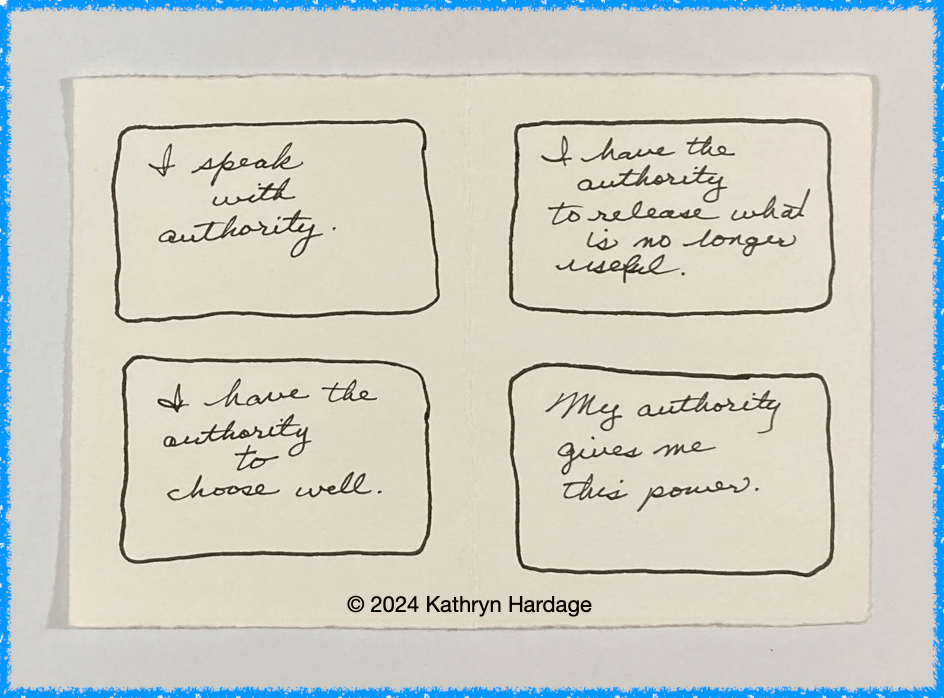 I speak
with
authority.
I have the
authority
to release what
is no longer
useful.
I have the
authority
to
choose well.
My authority
gives me
this power.
© 2024 Kathryn Hardage